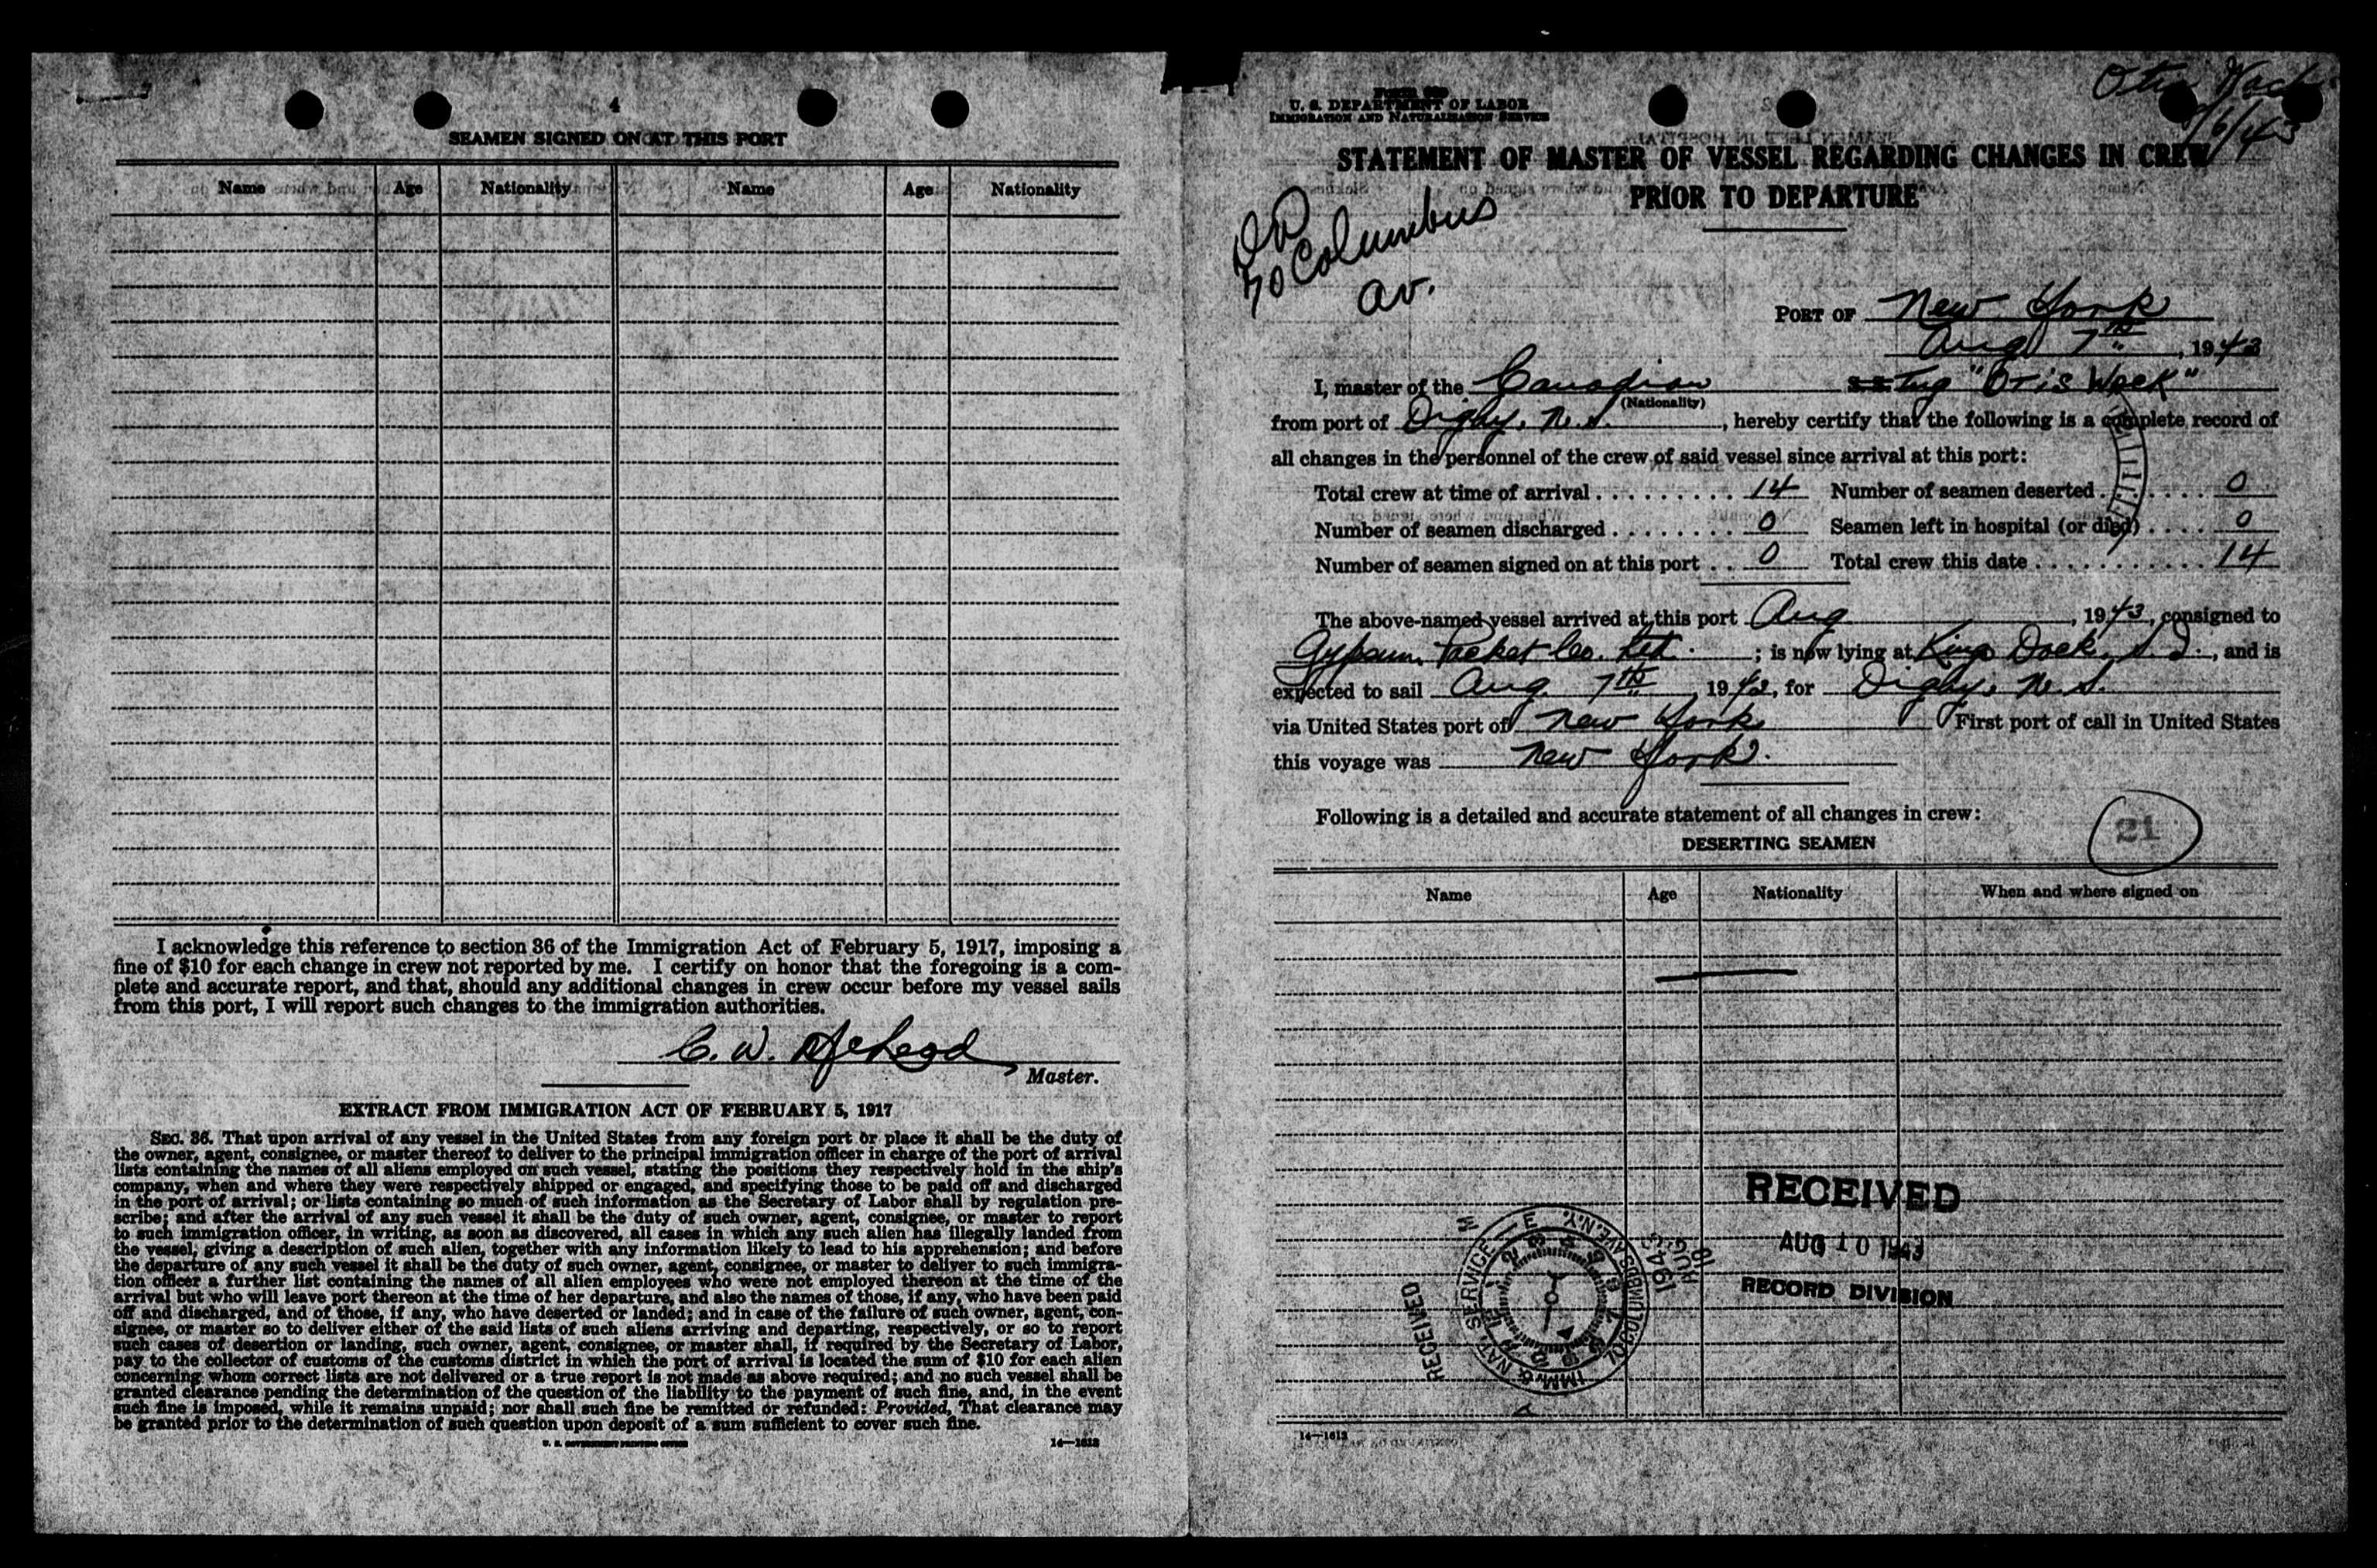 4
SEAMEN SIGNED ON AT THIS PORT
Name Age Nationality Name Age Nationality
I acknowledge this reference to section 36 of the Immigration Act of February 5, 1917, imposing a
fine of $10 for each change in crew not reported by me. I certify on honor that the foregoing is a com-
plete and accurate report, and that, should any additional changes in crew occur before my vessel sails
from this port, I will report such changes to the immigration authorities.
C. W. McLeod
Master.
EXTRACT FROM IMMIGRATION ACT OF FEBRUARY 5, 1917
SEC. 36. That upon arrival of any vessel in the United States from any foreign port or place it shall be the duty of
the owner, agent, consignee, or master thereof to deliver to the principal immigration officer in charge of the port of arrival
lists containing the names of all aliens employed on such vessel, stating the positions they respectively hold in the ship's
company, when and where they were respectively shipped or engaged, and specifying those to be paid off and discharged
in the port of arrival; or lists containing so much of such information as the Secretary of Labor shall by regulation pre-
scribe; and after the arrival of any such vessel it shall be the duty of such owner, agent, consignee, or master to report
to such immigration officer, in writing, as soon as discovered, all cases in which any such alien has illegally landed from
the vessel, giving a description of such alien, together with any information likely to lead to his apprehension; and before
the departure of any such vessel it shall be the duty of such owner, agent, consignee, or master to deliver to such immigra-
tion officer a further list containing the names of all alien employees who were not employed thereon at the time of the
arrival but who will leave port thereon at the time of her departure, and also the names of those, if any, who have been paid
off and discharged, and of those, if any, who have deserted or landed; and in case of the failure of such owner, agent, con-
signee, or master so to deliver either of the said lists of such aliens arriving and departing, respectively, or so to report
such cases of desertion or landing, such owner, agent, consignee, or master shall, if required by the Secretary of Labor,
pay to the collector of customs of the customs district in which the port of arrival is located the sum of $10 for each alien
concerning whom correct lists are not delivered or a true report is not made as above required; and no such vessel shall be
granted clearance pending the determination of the question of the liability to the payment of such fine, and, in the event
such fine is imposed, while it remains unpaid; nor shall such fine be remitted or refunded: Provided, That clearance may
be granted prior to the determination of such question upon deposit of a sum sufficient to cover such fine.
U. S. GOVERNMENT PRINTING OFFICE 14—1613
U. S. DEPARTMENT OF LABOR
IMMIGRATION AND NATURALIZATION SERVICE
Otis Wack
/6/43
STATEMENT OF MASTER OF VESSEL REGARDING CHANGES IN CREW
PRIOR TO DEPARTURE
70 Columbus
av.
PORT OF New York
Aug 7th, 1943
I, master of the Canadian S. S. Tug "Otis Wack"
(Nationality)
from port of Digby, N. S., hereby certify that the following is a complete record of
all changes in the personnel of the crew of said vessel since arrival at this port:
Total crew at time of arrival 14 Number of seamen deserted 0
Number of seamen discharged 0 Seamen left in hospital (or died) 0
Number of seamen signed on at this port 0 Total crew this date 14
The above-named vessel arrived at this port Aug, 1943, consigned to
Gypsum Packet Co. Ltd.; is now lying at Kings Dock, S. I., and is
expected to sail Aug. 7th, 1943, for Digby, N. S.
via United States port of New York First port of call in United States
this voyage was New York.
Following is a detailed and accurate statement of all changes in crew:
21
DESERTING SEAMEN
Name Age Nationality When and where signed on
RECEIVED
AUG 10 1943
RECORD DIVISION
RECEIVED
IMM. & NAT. SERVICE
70 COLUMBUS AVE. N.Y.
14—1613